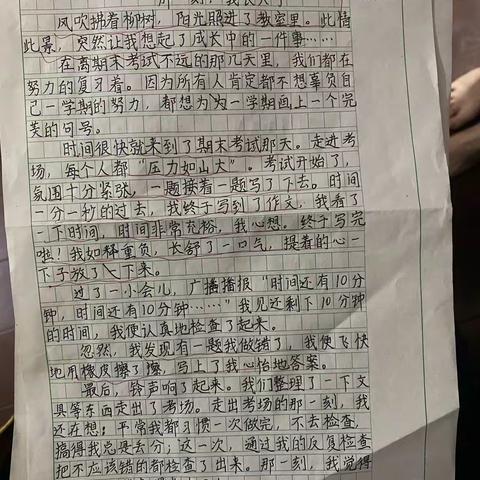 那一刻，我长大了
风吹拂着柳树，阳光照进了教室里。此情
此景，突然让我想起了成长中的一件事……
在离期末考试不远的那几天里，我们都在
努力的复习着。因为所有人肯定都不想辜负自
己一学期的努力，都想为为一学期画上一个完
美的句号。
时间很快就来到了期末考试那天。走进考
场，每个人都“压力如山大”。考试开始了，
氛围十分紧张，一题接着一题写了下去。时间
一分一秒的过去，我终于写到了作文，我看了
一下时间，时间非常充裕，我心想。终于写完
啦！我如释重负，长舒了一口气，提着的心一
下子放了下来。
过了一小会儿，广播播报“时间还有10分
钟，时间还有10分钟……”我见还剩下10分钟
的时间，我便认真地检查了起来。
忽然，我发现有一题我做错了，我便飞快
地用橡皮擦了擦，写上了我心怡地答案。
最后，铃声响了起来。我们整理了一下文
具等东西走出了考场。走出考场的那一刻，我
还在想：平常我都习惯一次做完，不去检查，
搞得我总是丢分；这一次，通过我的反复检查
把不应该错的都检查了出来。那一刻，我觉得